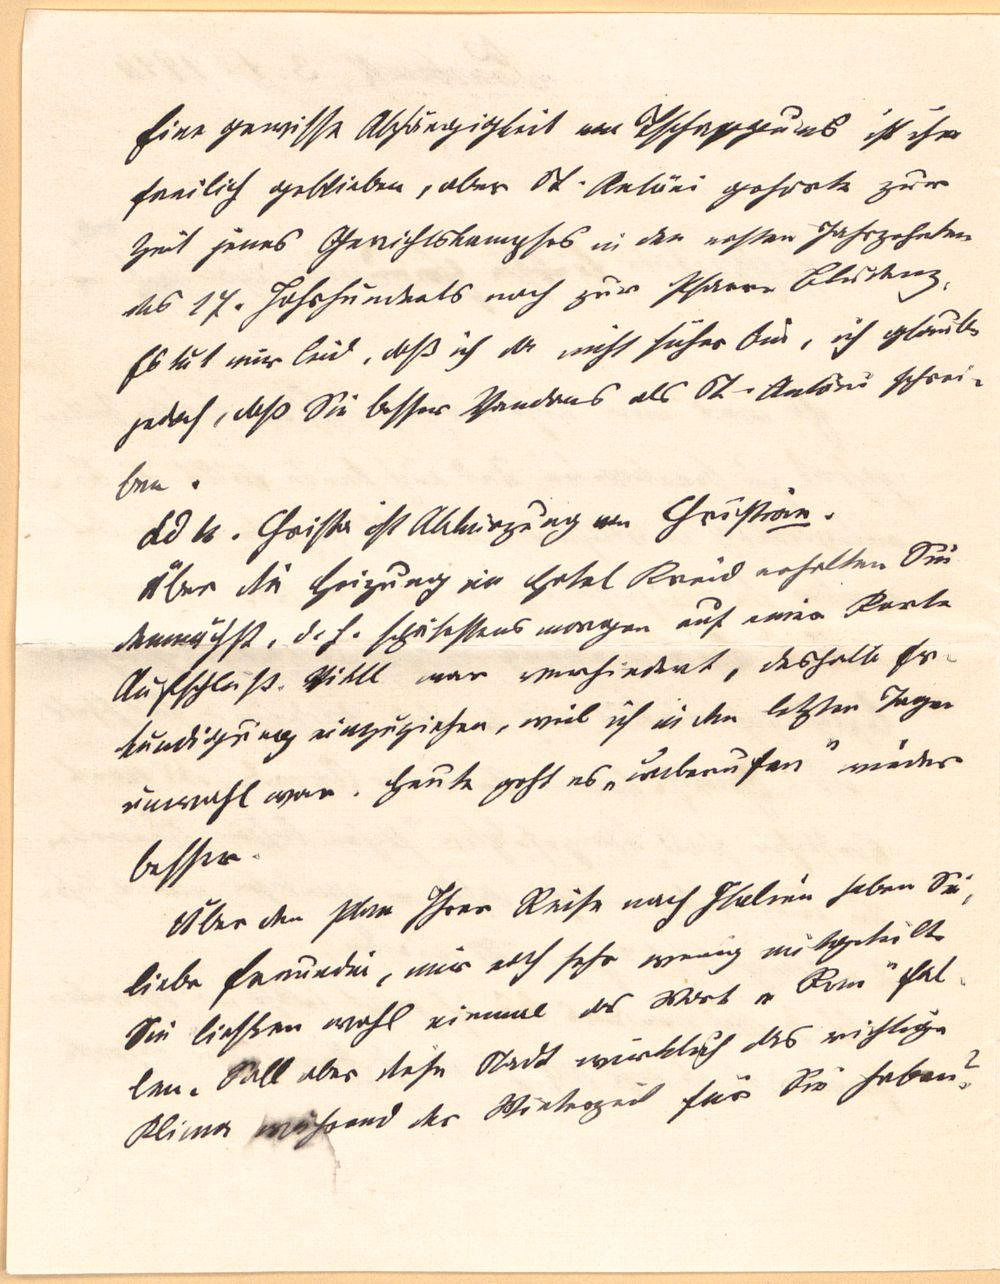 Eine gewisse Abhängigkeit von Tschagguns ist ihm
freilich geblieben, aber St. Antöni gehörte zur
Zeit jenes Gerichtskampfes in den ersten Jahrzehnten
des 17. Jahrhunderts noch zur Pfarre Bludenz.
Es tut mir leid, daß ich da nicht sicher bin, ich glaube
jedoch, daß Sie besser Vandans als St. Antöni schrei-
ben.
Christa ist Abkürzung von Christian.
Über die Heizung im Hotel Kreid erhalten Sie
demnächst, d. h. spätestens morgen auf einer Karte
Aufschluß. Bittl war verhindert, deshalb Er-
kundigung einzuziehen, weil ich in den letzten Tagen
unwohl war. Heute geht es „unberufen" wieder
besser.
Über den Plan Ihrer Reise nach Italien haben Sie,
liebe Freundin, mir noch sehr wenig mitgeteilt.
Sie ließen wohl einmal das Wort „Rom" fal-
len. Soll aber diese Stadt wirklich das richtige
Klima während der Winterzeit für Sie haben?